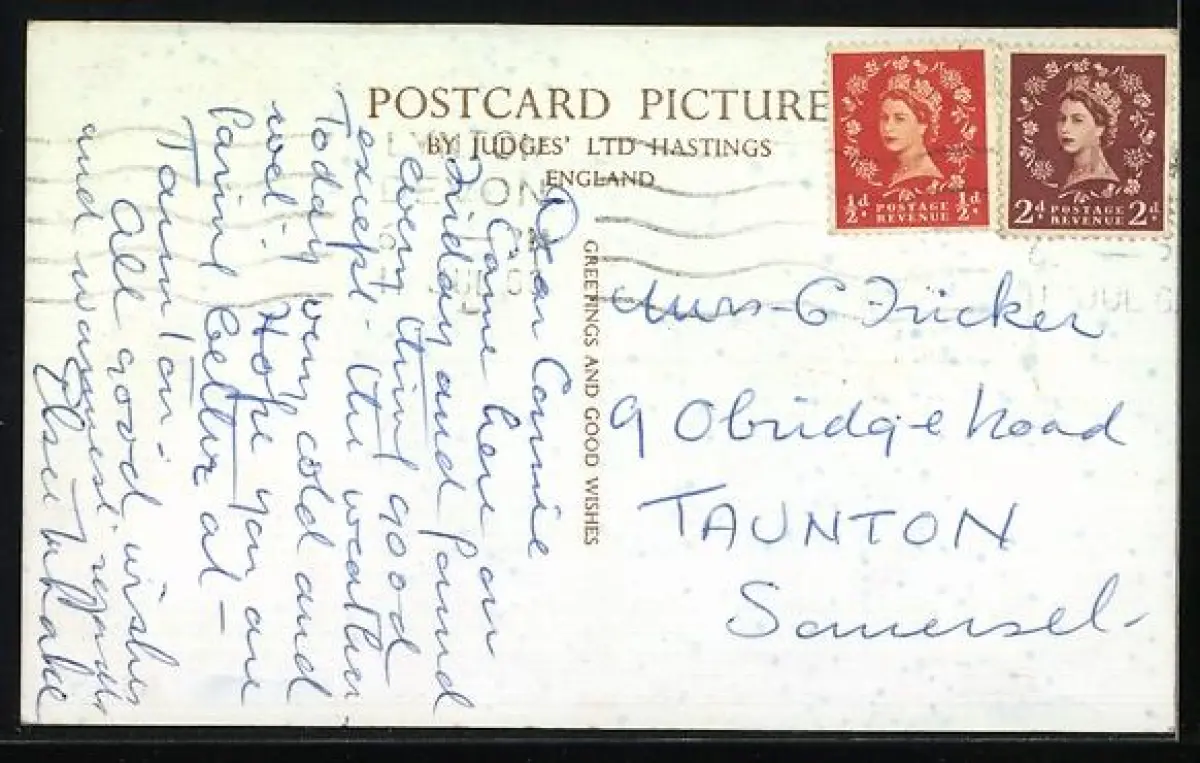 POSTCARD PICTURE
BY JUDGES' LTD HASTINGS
ENGLAND
½d POSTAGE REVENUE ½d
2d POSTAGE REVENUE 2d
GREETINGS AND GOOD WISHES
Dear Connie
Came here on
Friday and found
every thing good
except - the weather
Today very cold and
wet: Hope you are
faring better at
Taunton.
All good wishes
and warmest regards
Elsie
Mrs G Fricker
9 Obridge Road
TAUNTON
Somerset